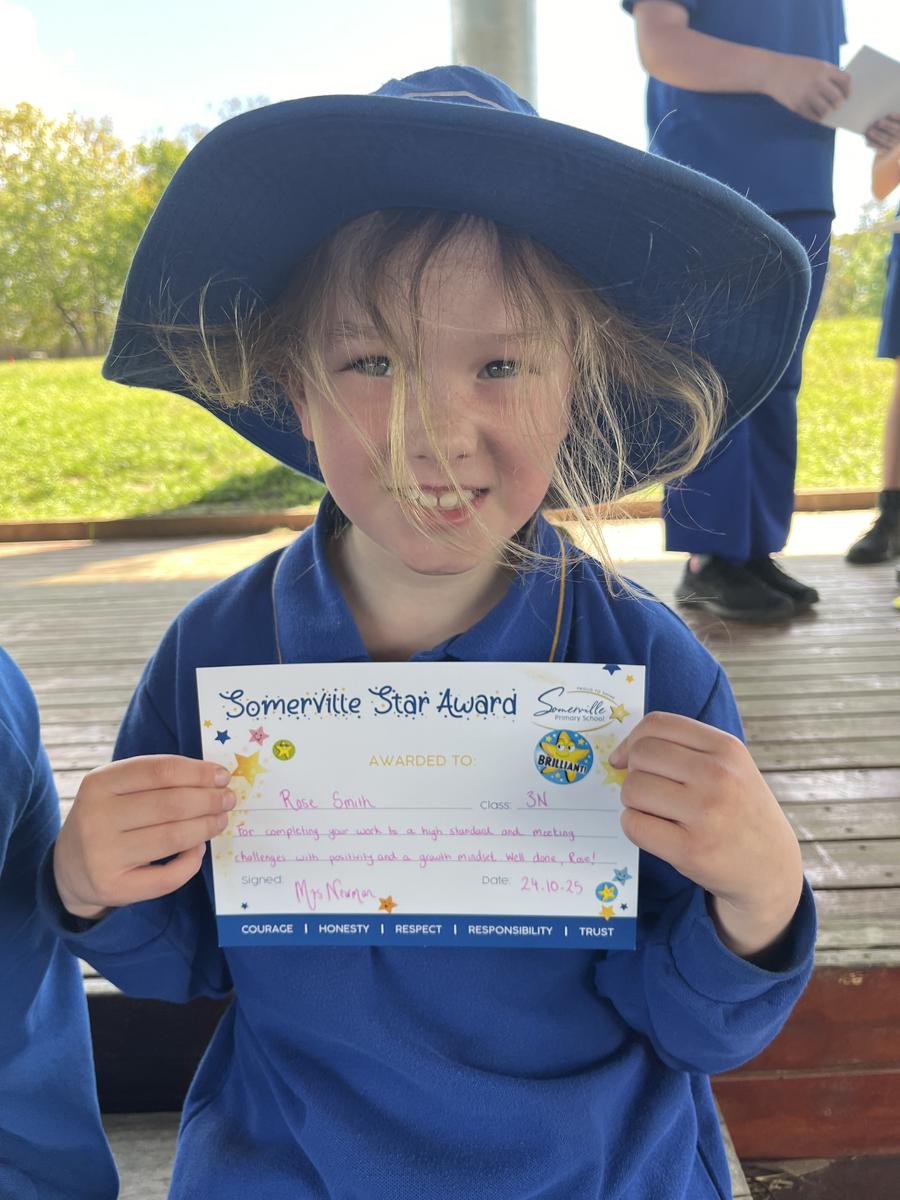 Somerville Star Award
PROUD TO SHINE
Somerville
Primary School
BRILLIANT!
AWARDED TO:
Rose Smith Class: 3N
For completing your work to a high standard and meeting
challenges with positivity and a growth mindset. Well done, Rose!
Signed: Mrs Newman Date: 24.10.25
COURAGE | HONESTY | RESPECT | RESPONSIBILITY | TRUST